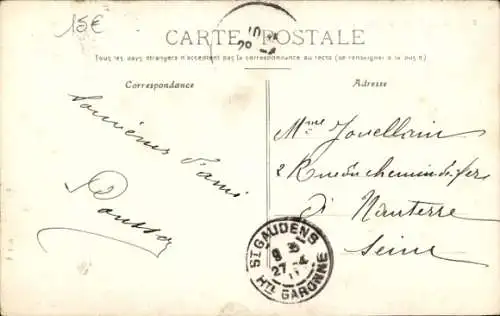 15€
CARTE POSTALE
Tous les pays étrangers n'acceptent pas la correspondance au recto (se renseigner à la poste)
Correspondance
Adresse
Souvenirs d'ami
Mme Jouellain
2 Rue du chemin de fer
à Nanterre
Seine
ST GAUDENS
27
HTE GARONNE